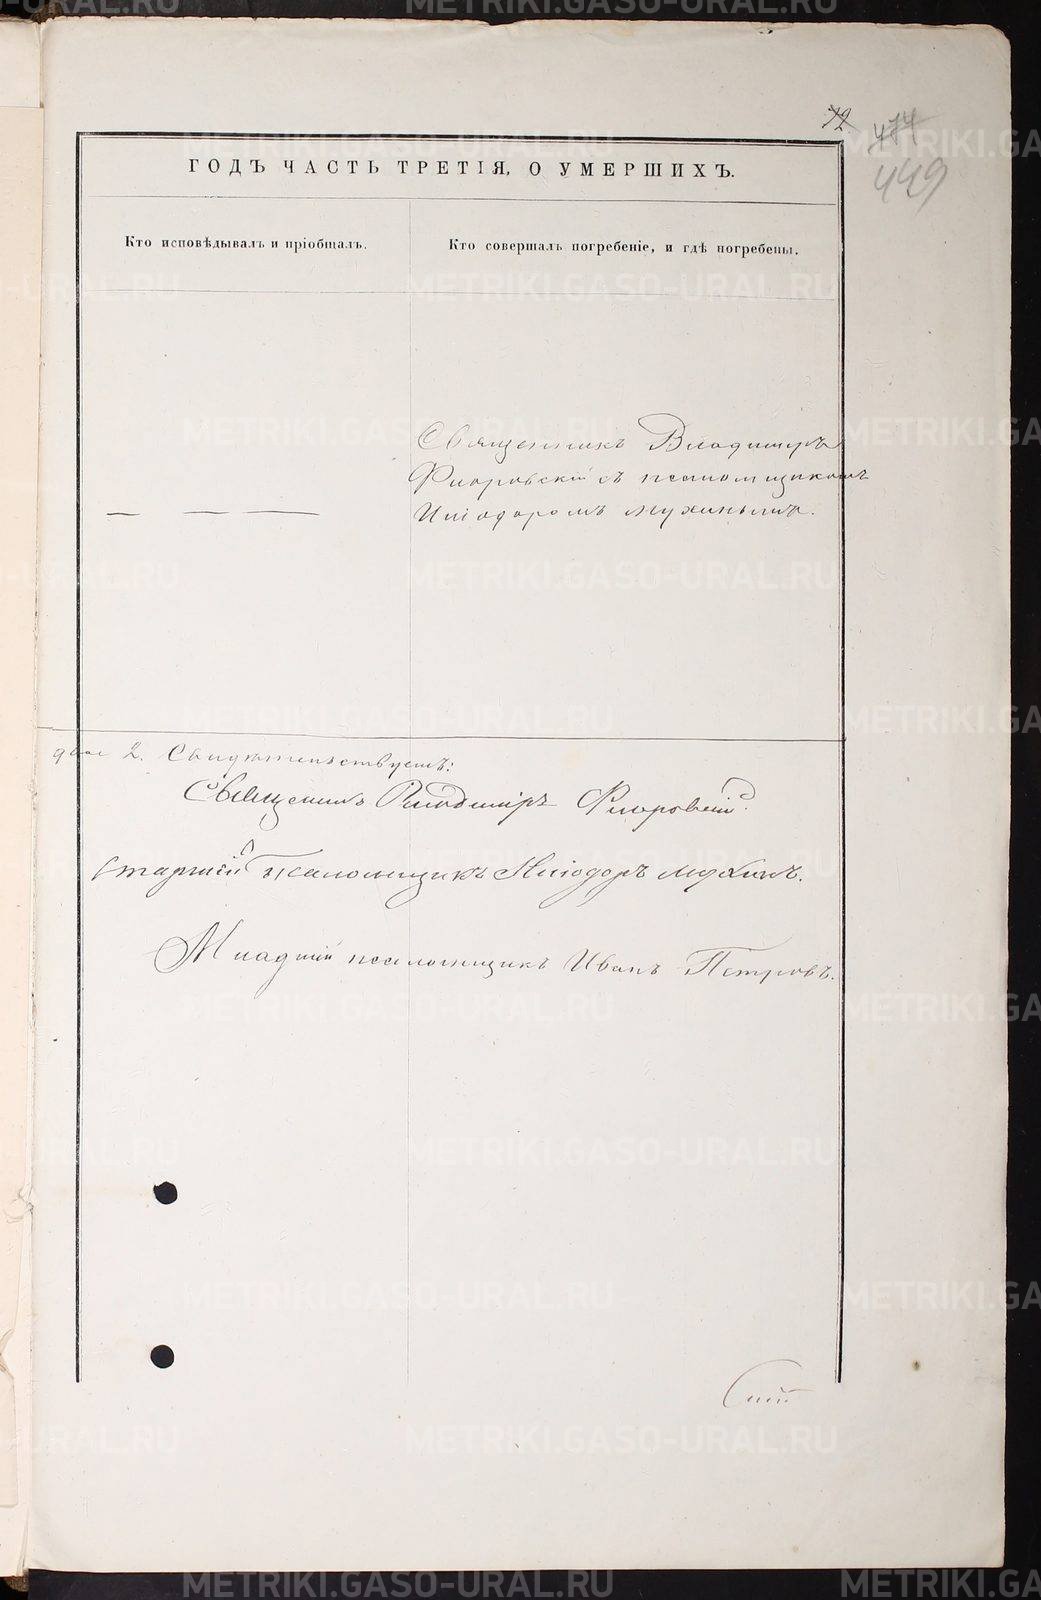 72
474
449
ГОДЪ ЧАСТЬ ТРЕТІЯ, О УМЕРШИХЪ.
Кто исповѣдывалъ и пріобщалъ.
Кто совершалъ погребеніе, и гдѣ погребены.
Священникъ Владиміръ
Флоровскій съ псаломщикомъ
Исіодоромъ Мухинымъ.
двое 2. Свидѣтельствуемъ:
Священникъ Владиміръ Флоровскій.
Старшій Псаломщикъ Исіодоръ Мухинъ.
Младшій псаломщикъ Иванъ Петровъ.
METRIKI.GASO-URAL.RU